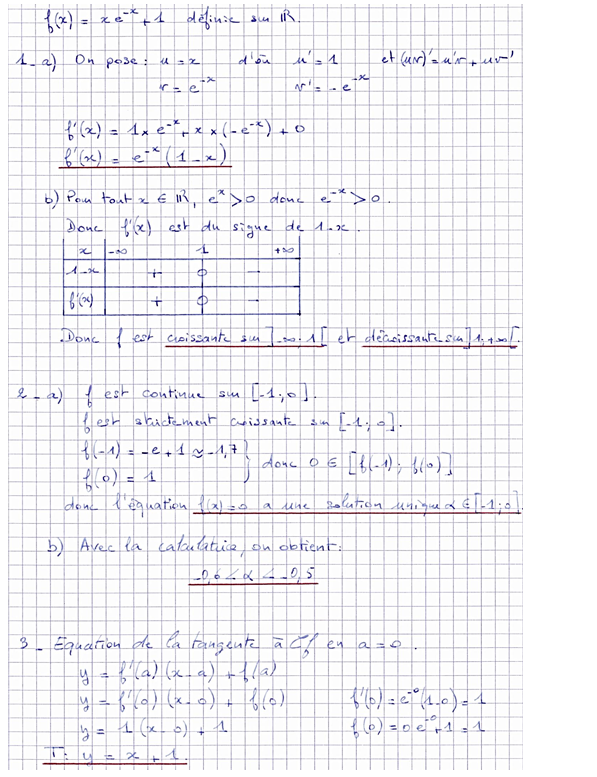 f(x) = x e^-x + 1 définie sur ℝ.
1_ a) On pose : u = x d'où u' = 1 et (uv)' = u'v + uv'
v = e^-x v' = - e^-x
f'(x) = 1 × e^-x + x × (-e^-x) + 0
f'(x) = e^-x (1 - x)
b) Pour tout x ∈ ℝ, e^x > 0 donc e^-x > 0.
Donc f'(x) est du signe de 1 - x.
x -∞ 1 +∞
1-x + 0 -
f'(x) + 0 -
Donc f est croissante sur ]-∞; 1[ et décroissante sur ]1; +∞[.
2_ a) f est continue sur [-1; 0].
f est strictement croissante sur [-1; 0].
f(-1) = -e + 1 ≈ -1,7 } donc 0 ∈ [f(-1); f(0)]
f(0) = 1
donc l'équation f(x) = 0 a une solution unique α ∈ [-1; 0].
b) Avec la calculatrice, on obtient:
-0,6 < α < -0,5
3_ Equation de la tangente à Cf en a = 0.
y = f'(a) (x - a) + f(a)
y = f'(0) (x - 0) + f(0) f'(0) = e^-0 (1 - 0) = 1
y = 1 (x - 0) + 1 f(0) = 0 e^-0 + 1 = 1
T: y = x + 1.